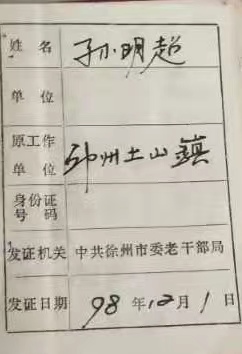 姓名 孙明超
单位
原工作单位 邳州土山鎮
身份证号码
发证机关 中共徐州市委老干部局
发证日期 98年12月1日